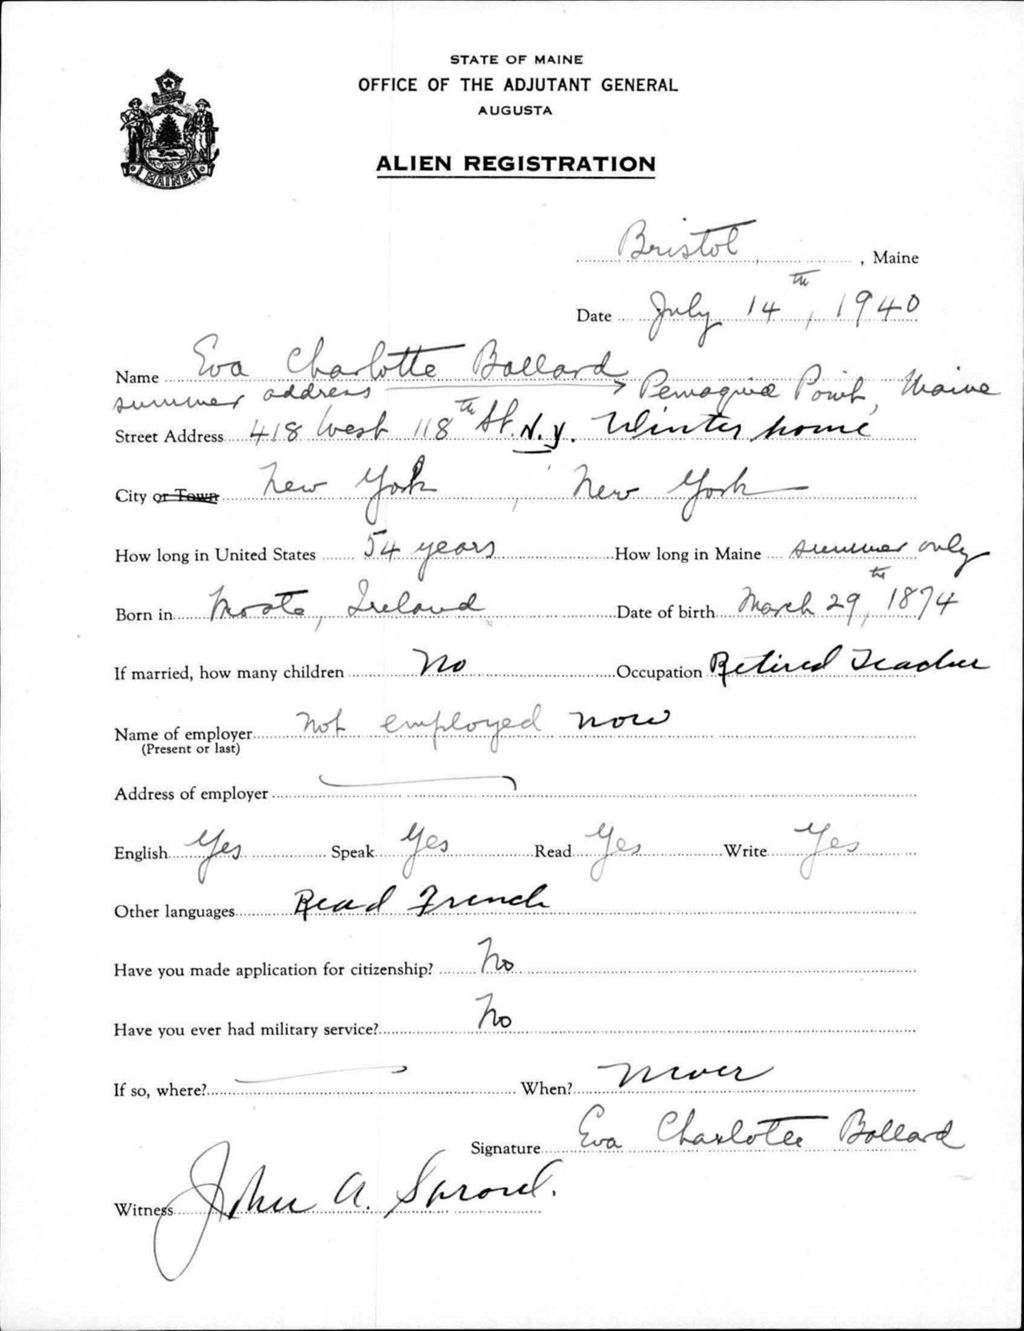 STATE OF MAINE
OFFICE OF THE ADJUTANT GENERAL
AUGUSTA
ALIEN REGISTRATION
MAINE
Bristol, , Maine
Date July 14th, 1940
Name Eva Charlotte Ballard
summer address → Pemaquid Point, Maine
Street Address 418 West 118th St. N.Y. Winter home
City or Town New York, New York
How long in United States 54 years How long in Maine summer only
Born in Moate, Ireland Date of birth March 29th, 1874
If married, how many children No Occupation Retired Teacher
Name of employer not employed now
(Present or last)
Address of employer
English Yes Speak Yes Read Yes Write Yes
Other languages Read French
Have you made application for citizenship? No
Have you ever had military service? No
If so, where? When? Never
Signature Eva Charlotte Ballard
Witness John A. Sproul.